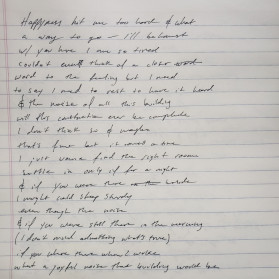 Happiness hit me too hard & what
a way to go — I'll be honest
w/ you here I am so tired
couldn't even think of a closer word
word to the feeling but I need
to say I need to rest to have it heard
& the noise of all this building
will this construction ever be complete
I don't think so & maybe
that's fine but it
I just wanna find the right room
settle in only if for a night
& if you were there beside
I might could sleep steady
even through the noise
& if you were still there in the morning
(I don't mind admitting what's true)
if you were there when I woke
what a joyful noise that building would be